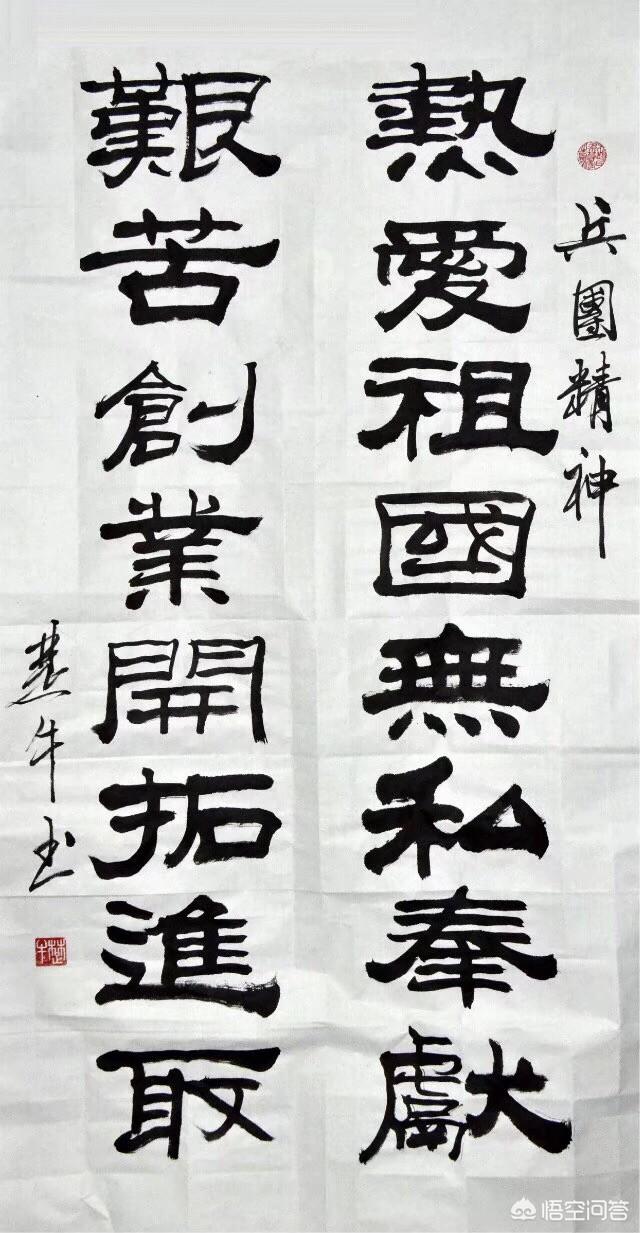 兵團精神
熱愛祖國無私奉獻
艱苦創業開拓進取
牛玉
悟空问答